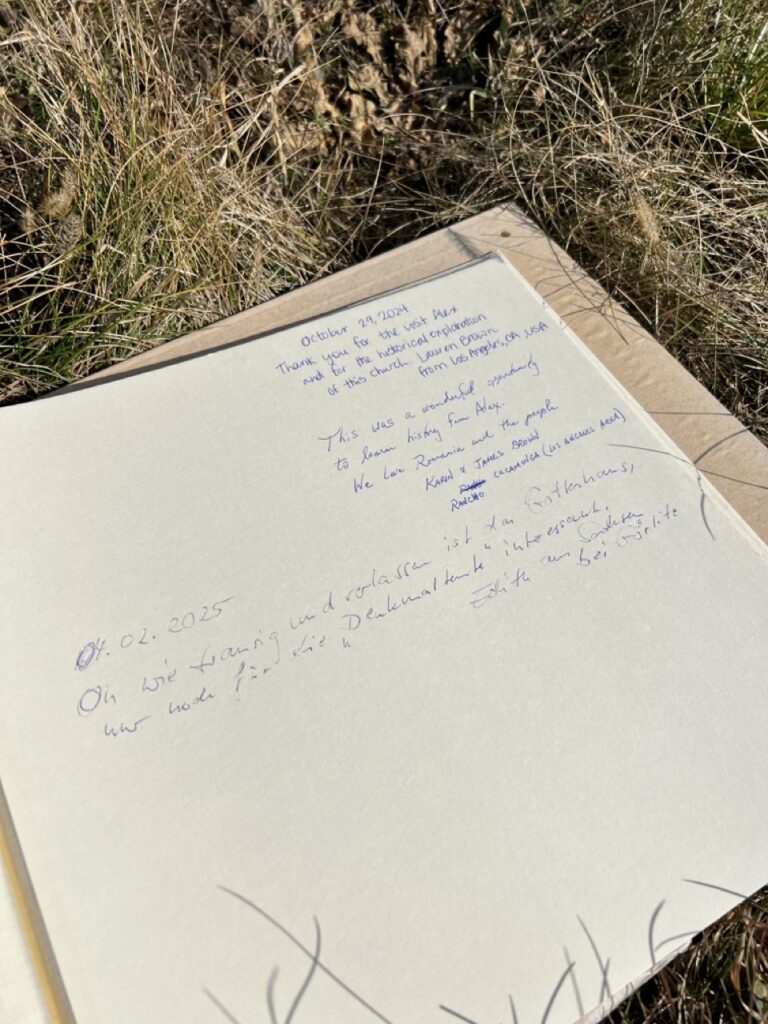 October 29, 2024
Thank you for the visit Alex
and for the historical explanation
of this church. Lauren Brown
from Los Angeles, CA, USA
This was a wonderful opportunity
to learn history from Alex.
We love Romania and the people
KARIN & JAMES BROWN
RANCHO CUCAMONGA (LOS ANGELES AREA)
04.02.2025
Oh wie traurig und verlassen ist das Gotteshaus,
nur noch für die "Denkmalleute" interessant.
Edith aus Sachsen
bei Görlitz